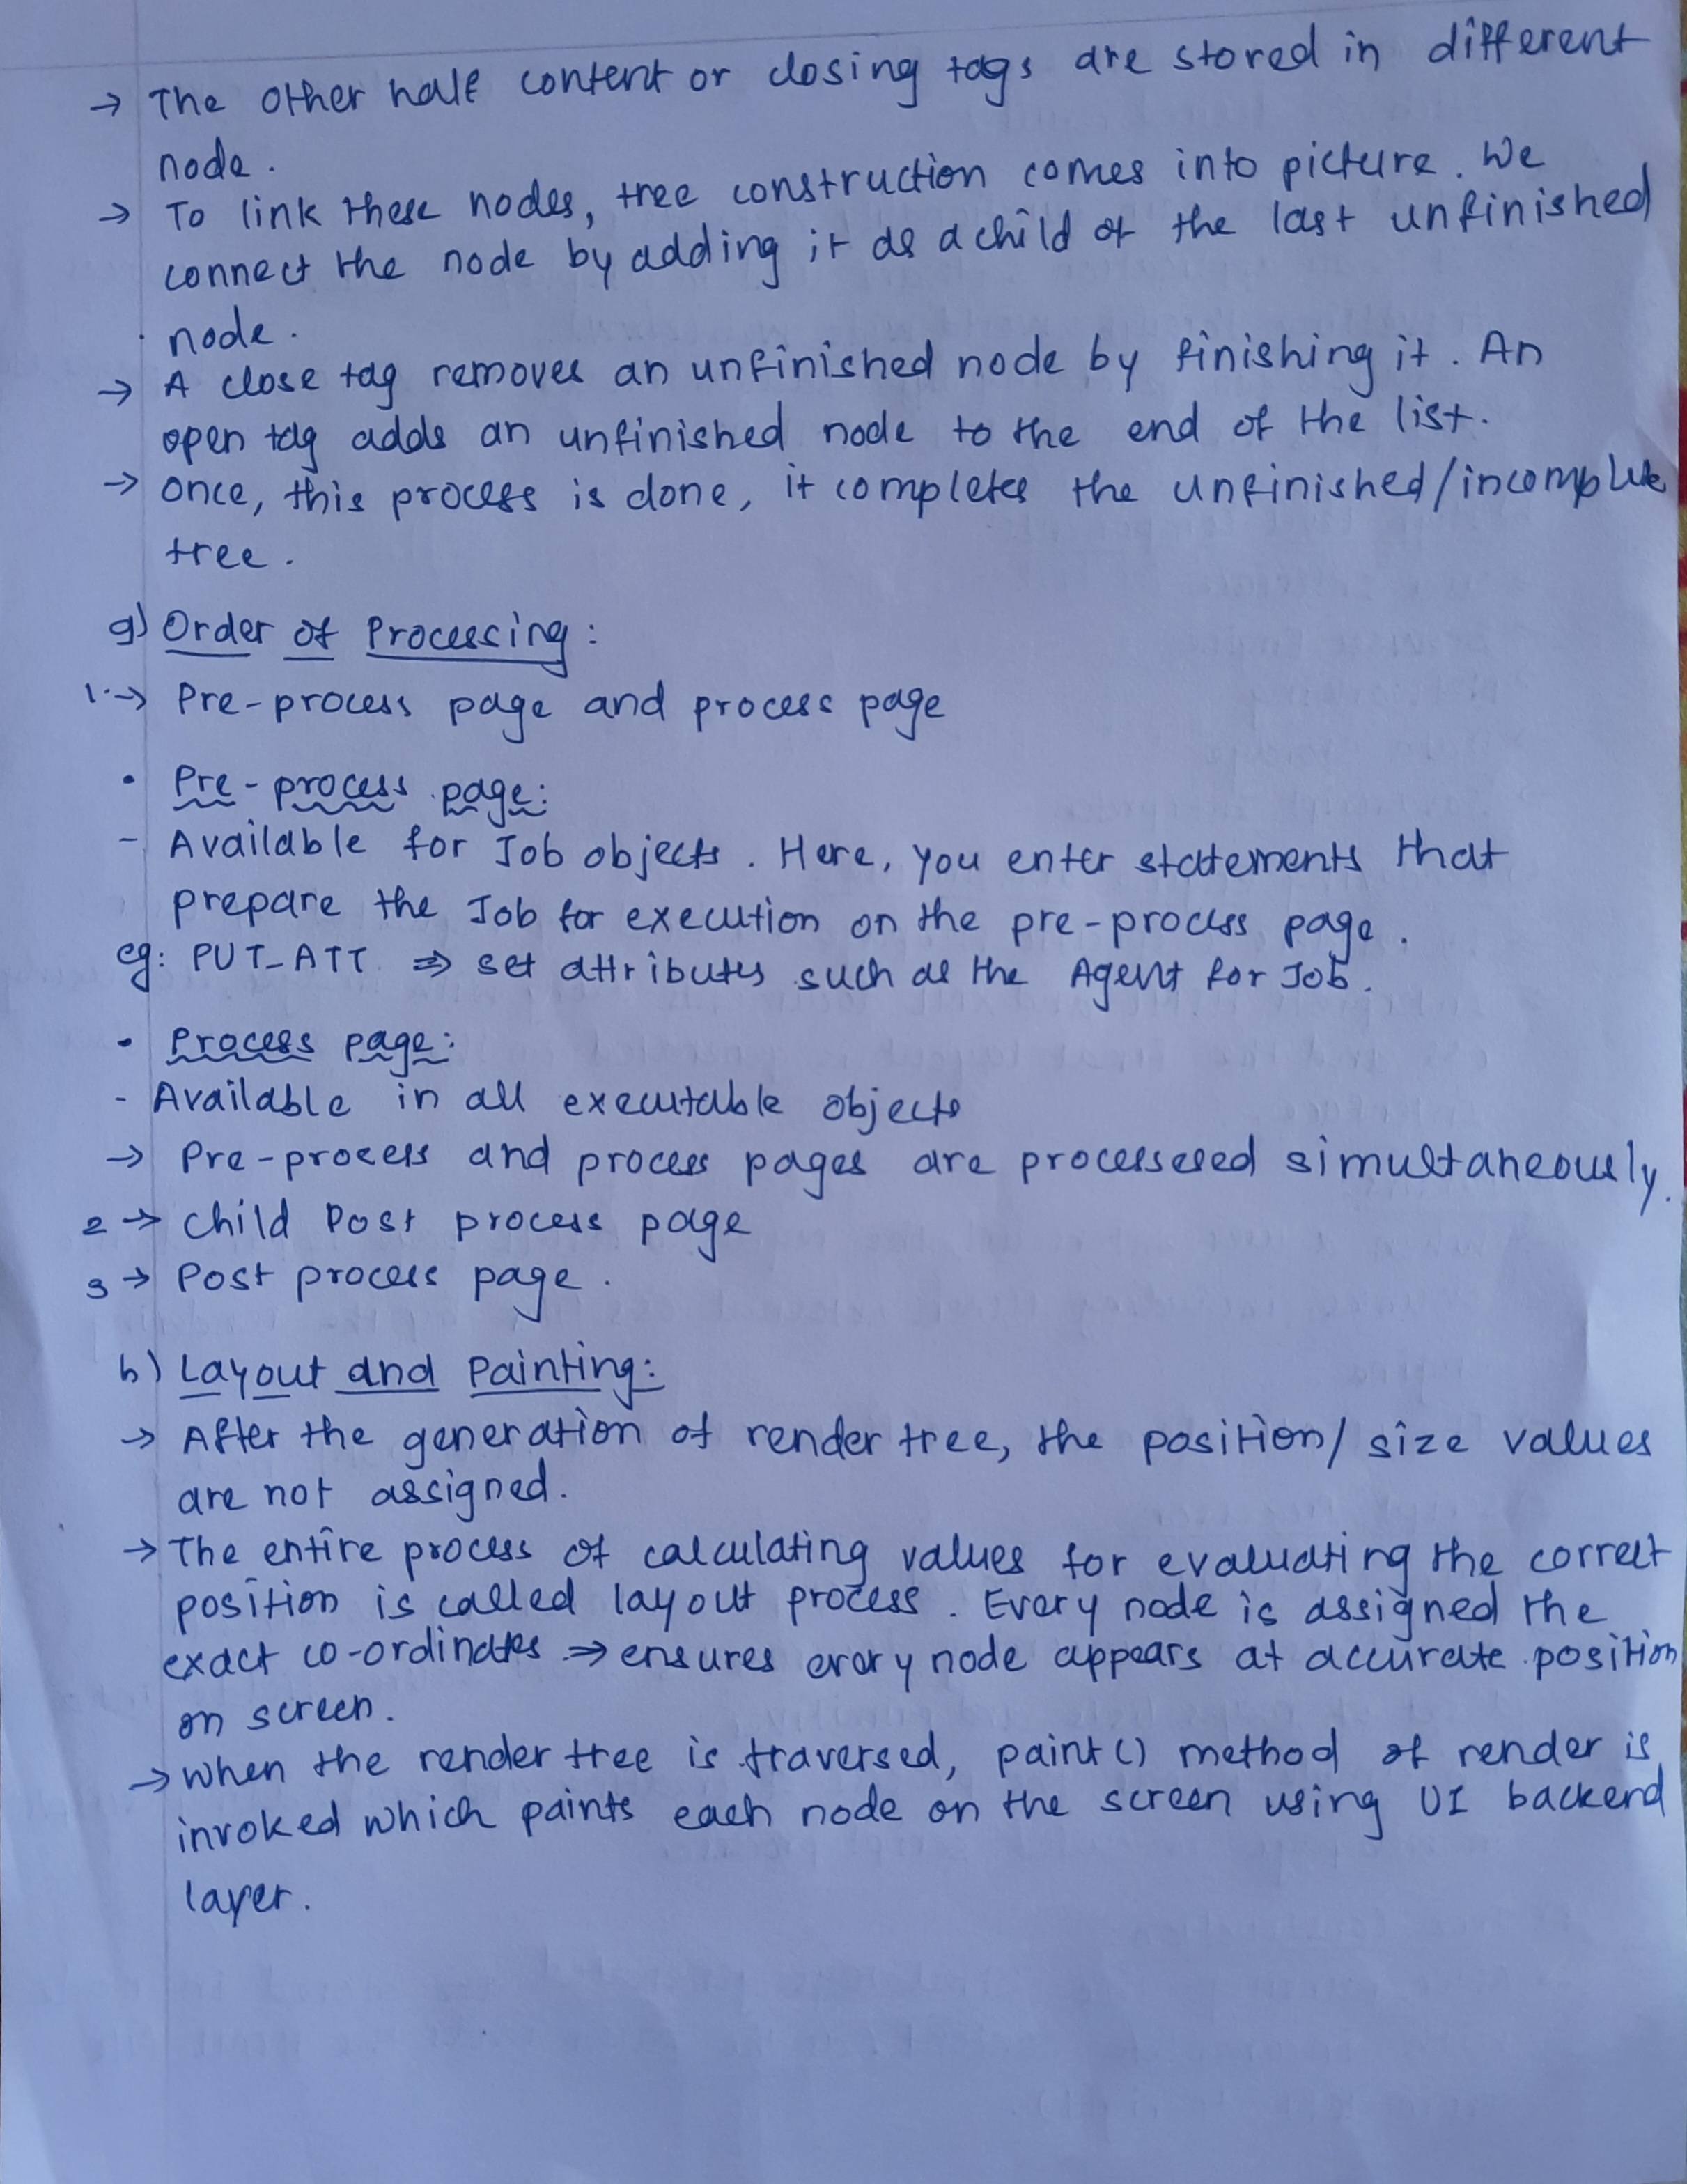 → The other half content or closing tags are stored in different
node.
→ To link these nodes, tree construction comes into picture. We
connect the node by adding it as a child of the last unfinished
node.
→ A close tag removes an unfinished node by finishing it. An
open tag adds an unfinished node to the end of the list.
→ Once, this process is done, it completes the unfinished/incomplete
tree.
g) Order of Processing:
1. → Pre-process page and process page
• Pre-process page:
- Available for Job objects. Here, you enter statements that
prepare the Job for execution on the pre-process page.
eg: PUT_ATT ⇒ set attributes such as the Agent for Job.
• Process page:
- Available in all executable objects
→ Pre-process and process pages are processesed simultaneously.
2 → Child Post process page
3 → Post process page.
h) Layout and Painting:
→ After the generation of render tree, the position/ size values
are not assigned.
→ The entire process of calculating values for evaluating the correct
position is called layout process. Every node is assigned the
exact co-ordinates ⇒ ensures every node appears at accurate position
on screen.
→ When the render tree is traversed, paint() method of render is
invoked which paints each node on the screen using UI backend
layer.